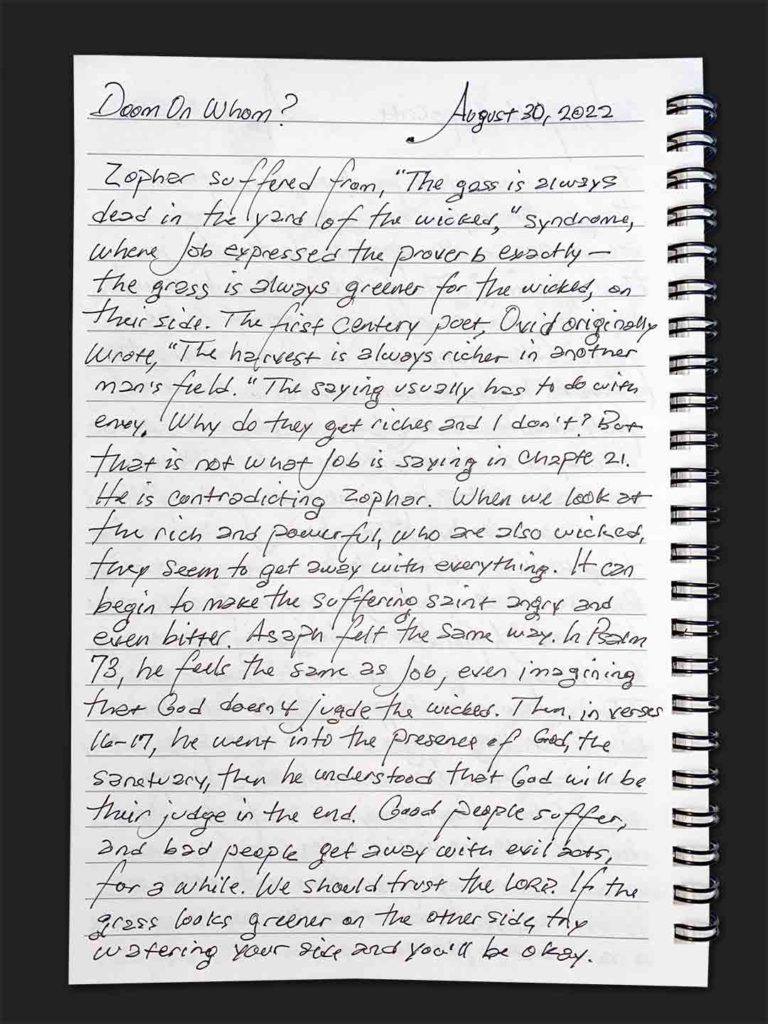 Doom On Whom? August 30, 2022
Zophar suffered from, "The gass is always
dead in the yard of the wicked," syndrome,
where Job expressed the proverb exactly—
the grass is always greener for the wicked, on
their side. The first century poet, Ovid originally
wrote, "The harvest is always richer in another
man's field." The saying usually has to do with
envy. Why do they get riches and I don't? But
that is not what Job is saying in chapte 21.
He is contradicting Zophar. When we look at
the rich and powerful, who are also wicked,
they seem to get away with everything. It can
begin to make the suffering saint angry and
even bitter. Asaph felt the same way. In Psalm
73, he feels the same as Job, even imagining
that God doesn't jugde the wicked. Then, in verses
16-17, he went into the presence of God, the
sanctuary, then he understood that God will be
their judge in the end. Good people suffer,
and bad people get away with evil acts,
for a while. We should trust the LORD. If the
grass looks greener on the other side, try
watering your side and you'll be okay.